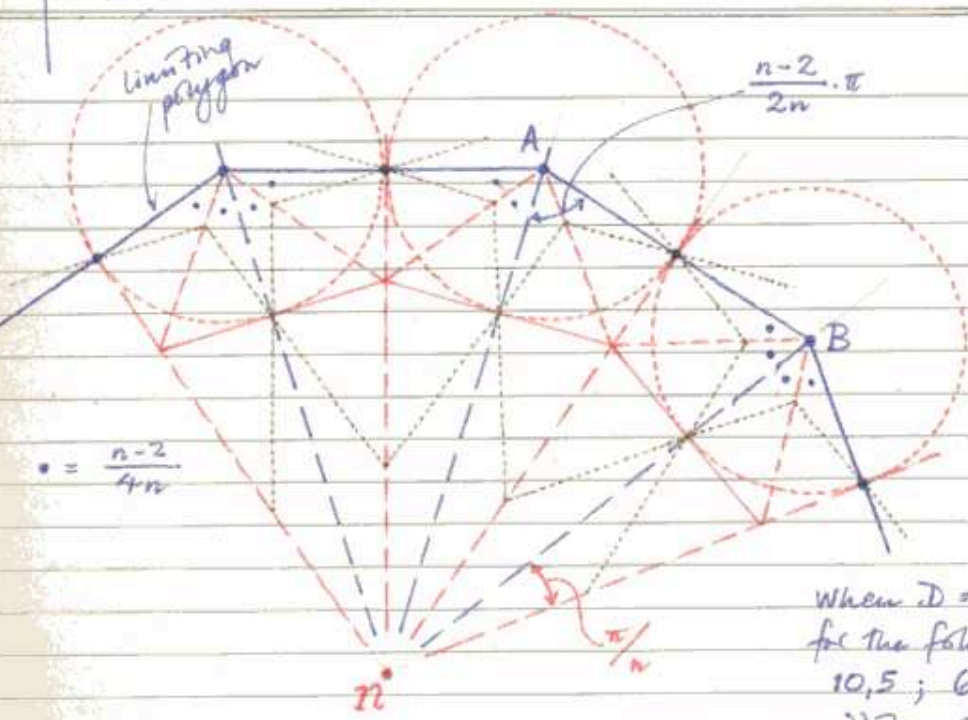 limiting
polygon
n-2
2n · π
A
B
• = n-2
4n
π/n
n
when D =
for the fol
10,5 ; 6